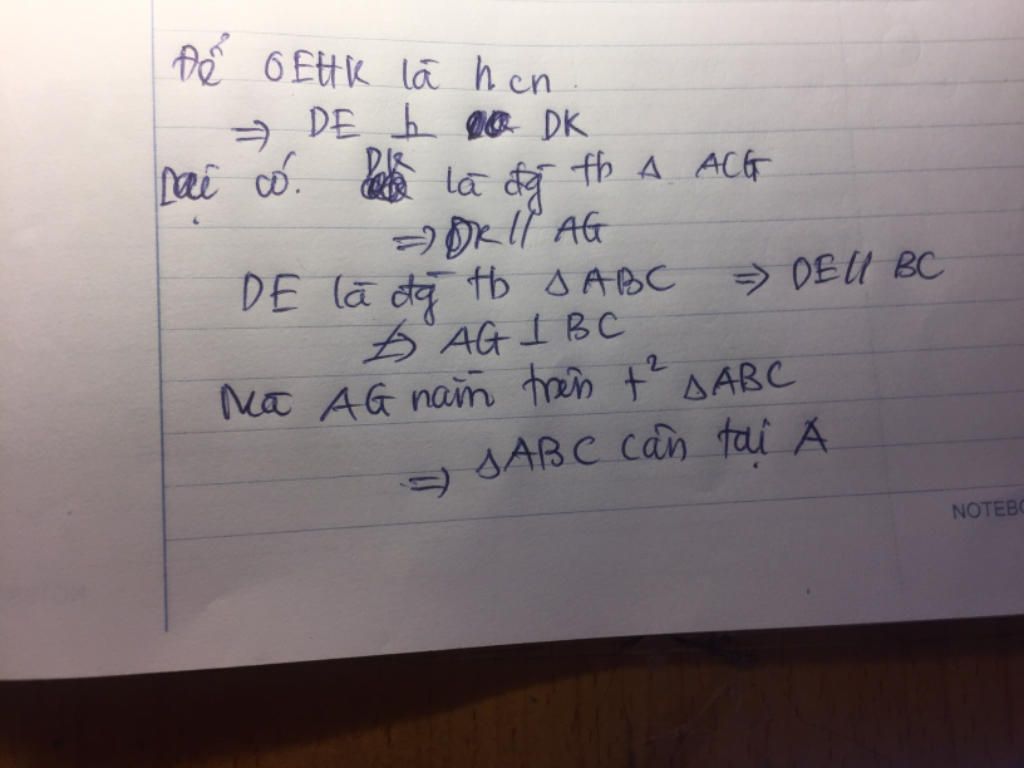 Để DEHK là hcn
⇒ DE ⊥ DK
Lại có. DK là đg tb Δ ACG
⇒ DK // AG
DE là đg tb Δ ABC ⇒ DE // BC
⇒ AG ⊥ BC
Mà AG nằm trên t² Δ ABC
⇒ Δ ABC cân tại A
NOTEBO